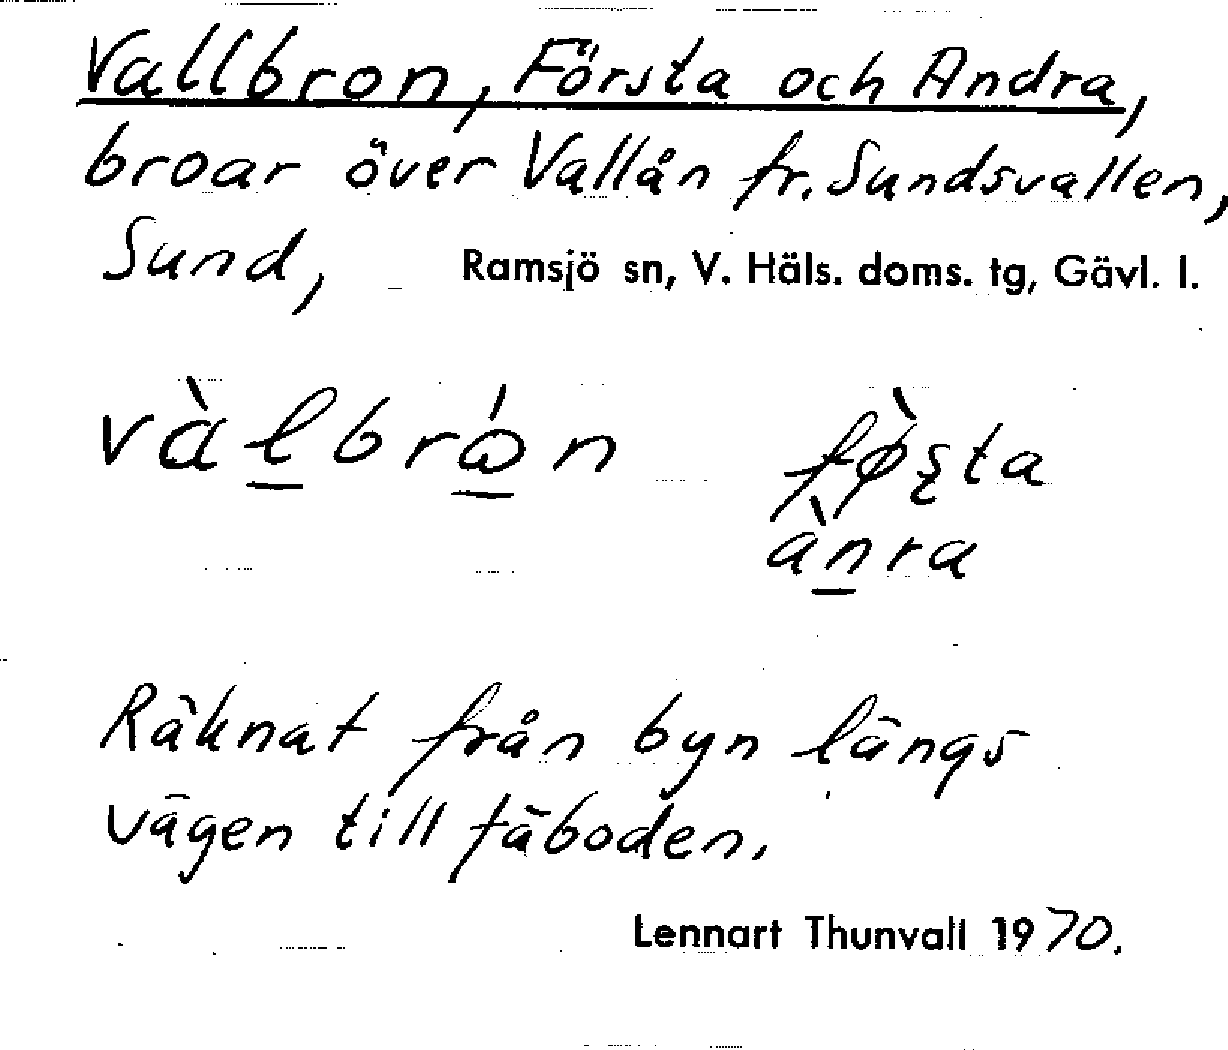 Vallbron, Första och Andra,
broar över Vallån fr. Sundsvallen,
Sund, Ramsjö sn, V. Häls. doms. tg, Gävl. l.
vàl̲brώ̲n fø̀ʂta
àn̲ra
Räknat från byn längs
vägen till fäboden.
Lennart Thunvall 1970.